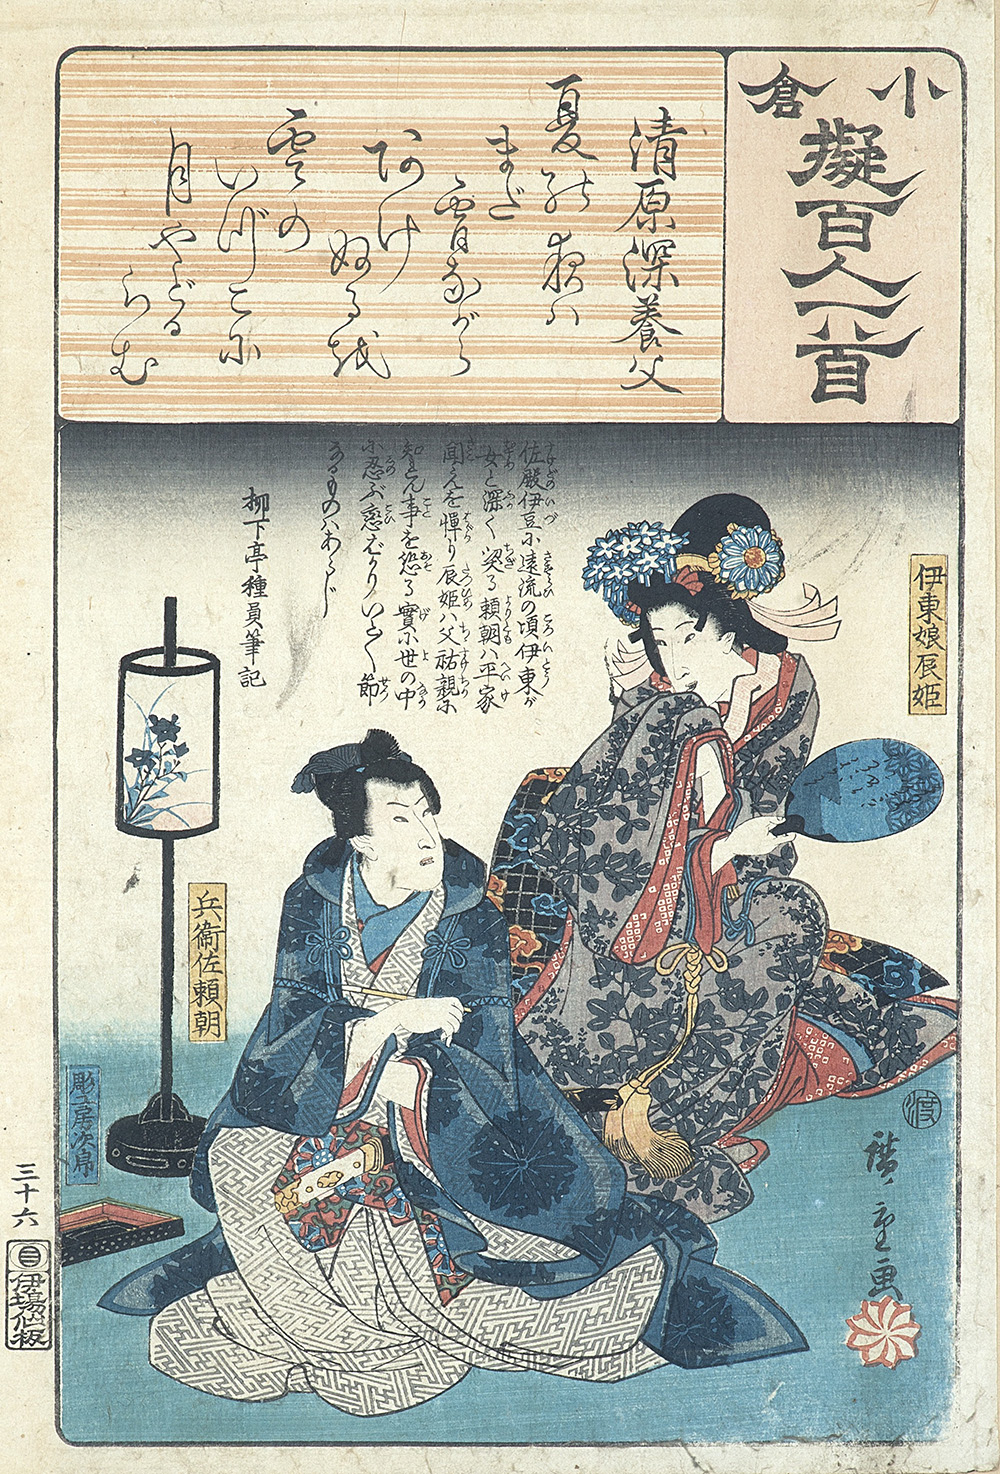 小倉
擬百人一首
清原深養父
夏の夜ハ
まだ
宵ながら
あけ
ぬるを
雲の
いづこに
月やどる
らむ
佐殿伊豆に遠流の頃伊東が
女と深く契る頼朝ハ平家
聞えを憚り辰姫ハ父祐親に
知れん事を恐る實に世の中
に忍ぶ戀ばかりいとく節
なるものハあらじ
柳下亭種員筆記
伊東娘辰姫
兵衛佐頼朝
彫工房次郎
渡
廣重画
三十六
伊場仙板